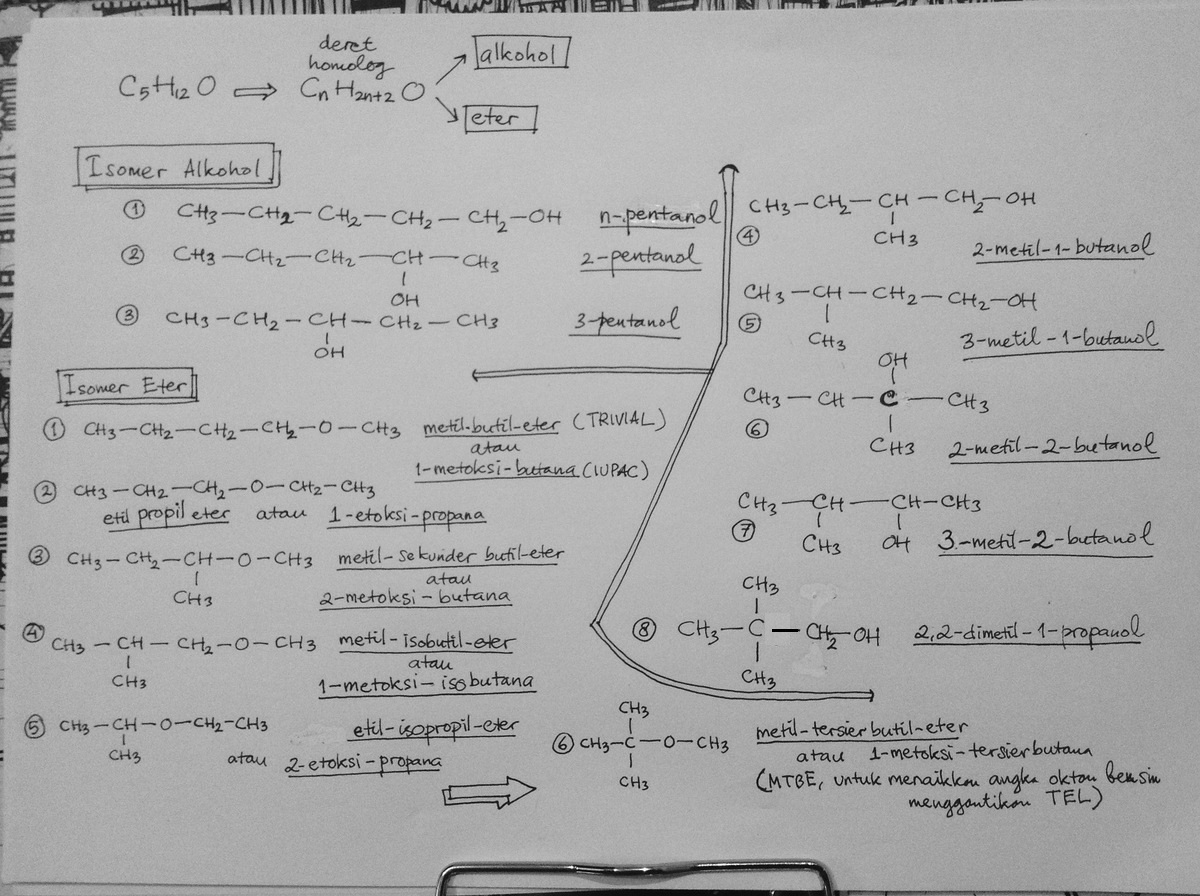 C5H12O ⟹ CnH2n+2O
deret homolog
alkohol
eter
Isomer Alkohol
① CH3—CH2—CH2—CH2—CH2—OH n-pentanol
② CH3—CH2—CH2—CH—CH3 2-pentanol
OH
③ CH3—CH2—CH—CH2—CH3 3-pentanol
OH
④ CH3—CH2—CH—CH2—OH
CH3
2-metil-1-butanol
⑤ CH3—CH—CH2—CH2—OH
CH3
3-metil-1-butanol
OH
⑥ CH3—CH—C—CH3
CH3
2-metil-2-butanol
⑦ CH3—CH—CH—CH3
CH3 OH 3-metil-2-butanol
CH3
⑧ CH3—C—CH2—OH 2,2-dimetil-1-propanol
CH3
Isomer Eter
① CH3—CH2—CH2—CH2—O—CH3 metil-butil-eter (TRIVIAL)
atau
1-metoksi-butana (IUPAC)
② CH3—CH2—CH2—O—CH2—CH3
etil propil eter atau 1-etoksi-propana
③ CH3—CH2—CH—O—CH3 metil-sekunder butil-eter
CH3
atau
2-metoksi-butana
④ CH3—CH—CH2—O—CH3 metil-isobutil-eter
CH3
atau
1-metoksi-isobutana
⑤ CH3—CH—O—CH2—CH3 etil-isopropil-eter
CH3
atau 2-etoksi-propana
CH3
⑥ CH3—C—O—CH3 metil-tersier butil-eter
CH3
atau 1-metoksi-tersier butana
(MTBE, untuk menaikkan angka oktan bensin
menggantikan TEL)